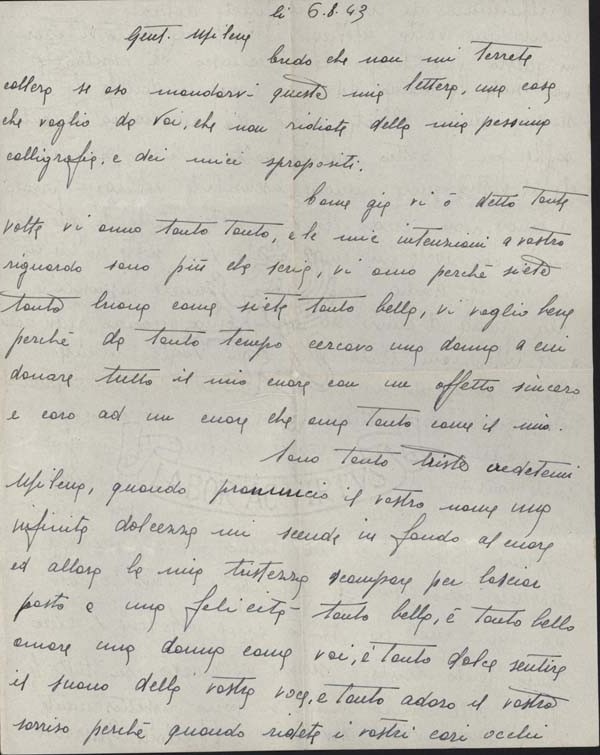 li 6.8.43
Gent. Milena
Credo che non mi terrete
collera se oso mandarvi questa mia lettera, una cosa
che voglio da voi, che non ridiate della mia pessima
calligrafia, e dei miei spropositi.
Come già vi ò detto tante
volte vi amo tanto tanto, e le mie intenzioni a vostro
riguardo sono più che serie, vi amo perchè siete
tanto buona come siete tanto bella, vi voglio bene
perchè da tanto tempo cercavo una donna a cui
donare tutto il mio cuore con un affetto sincero
e caro ad un cuore che ama tanto come il mio.
Sono tanto triste credetemi
Milena, quando pronuncio il vostro nome una
infinita dolcezza mi scende in fondo al cuore
ed allora la mia tristezza scompare per lasciar
posto a una felicità tanto bella, è tanto bello
amare una donna come voi, è tanto dolce sentire
il suono della vostra voce, e tanto adoro il vostro
sorriso perchè quando ridete i vostri cari occhi